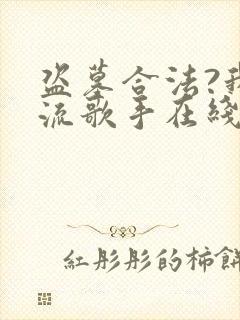 盗墓合法?我
流歌手在綫
紅彤彤的柿餅